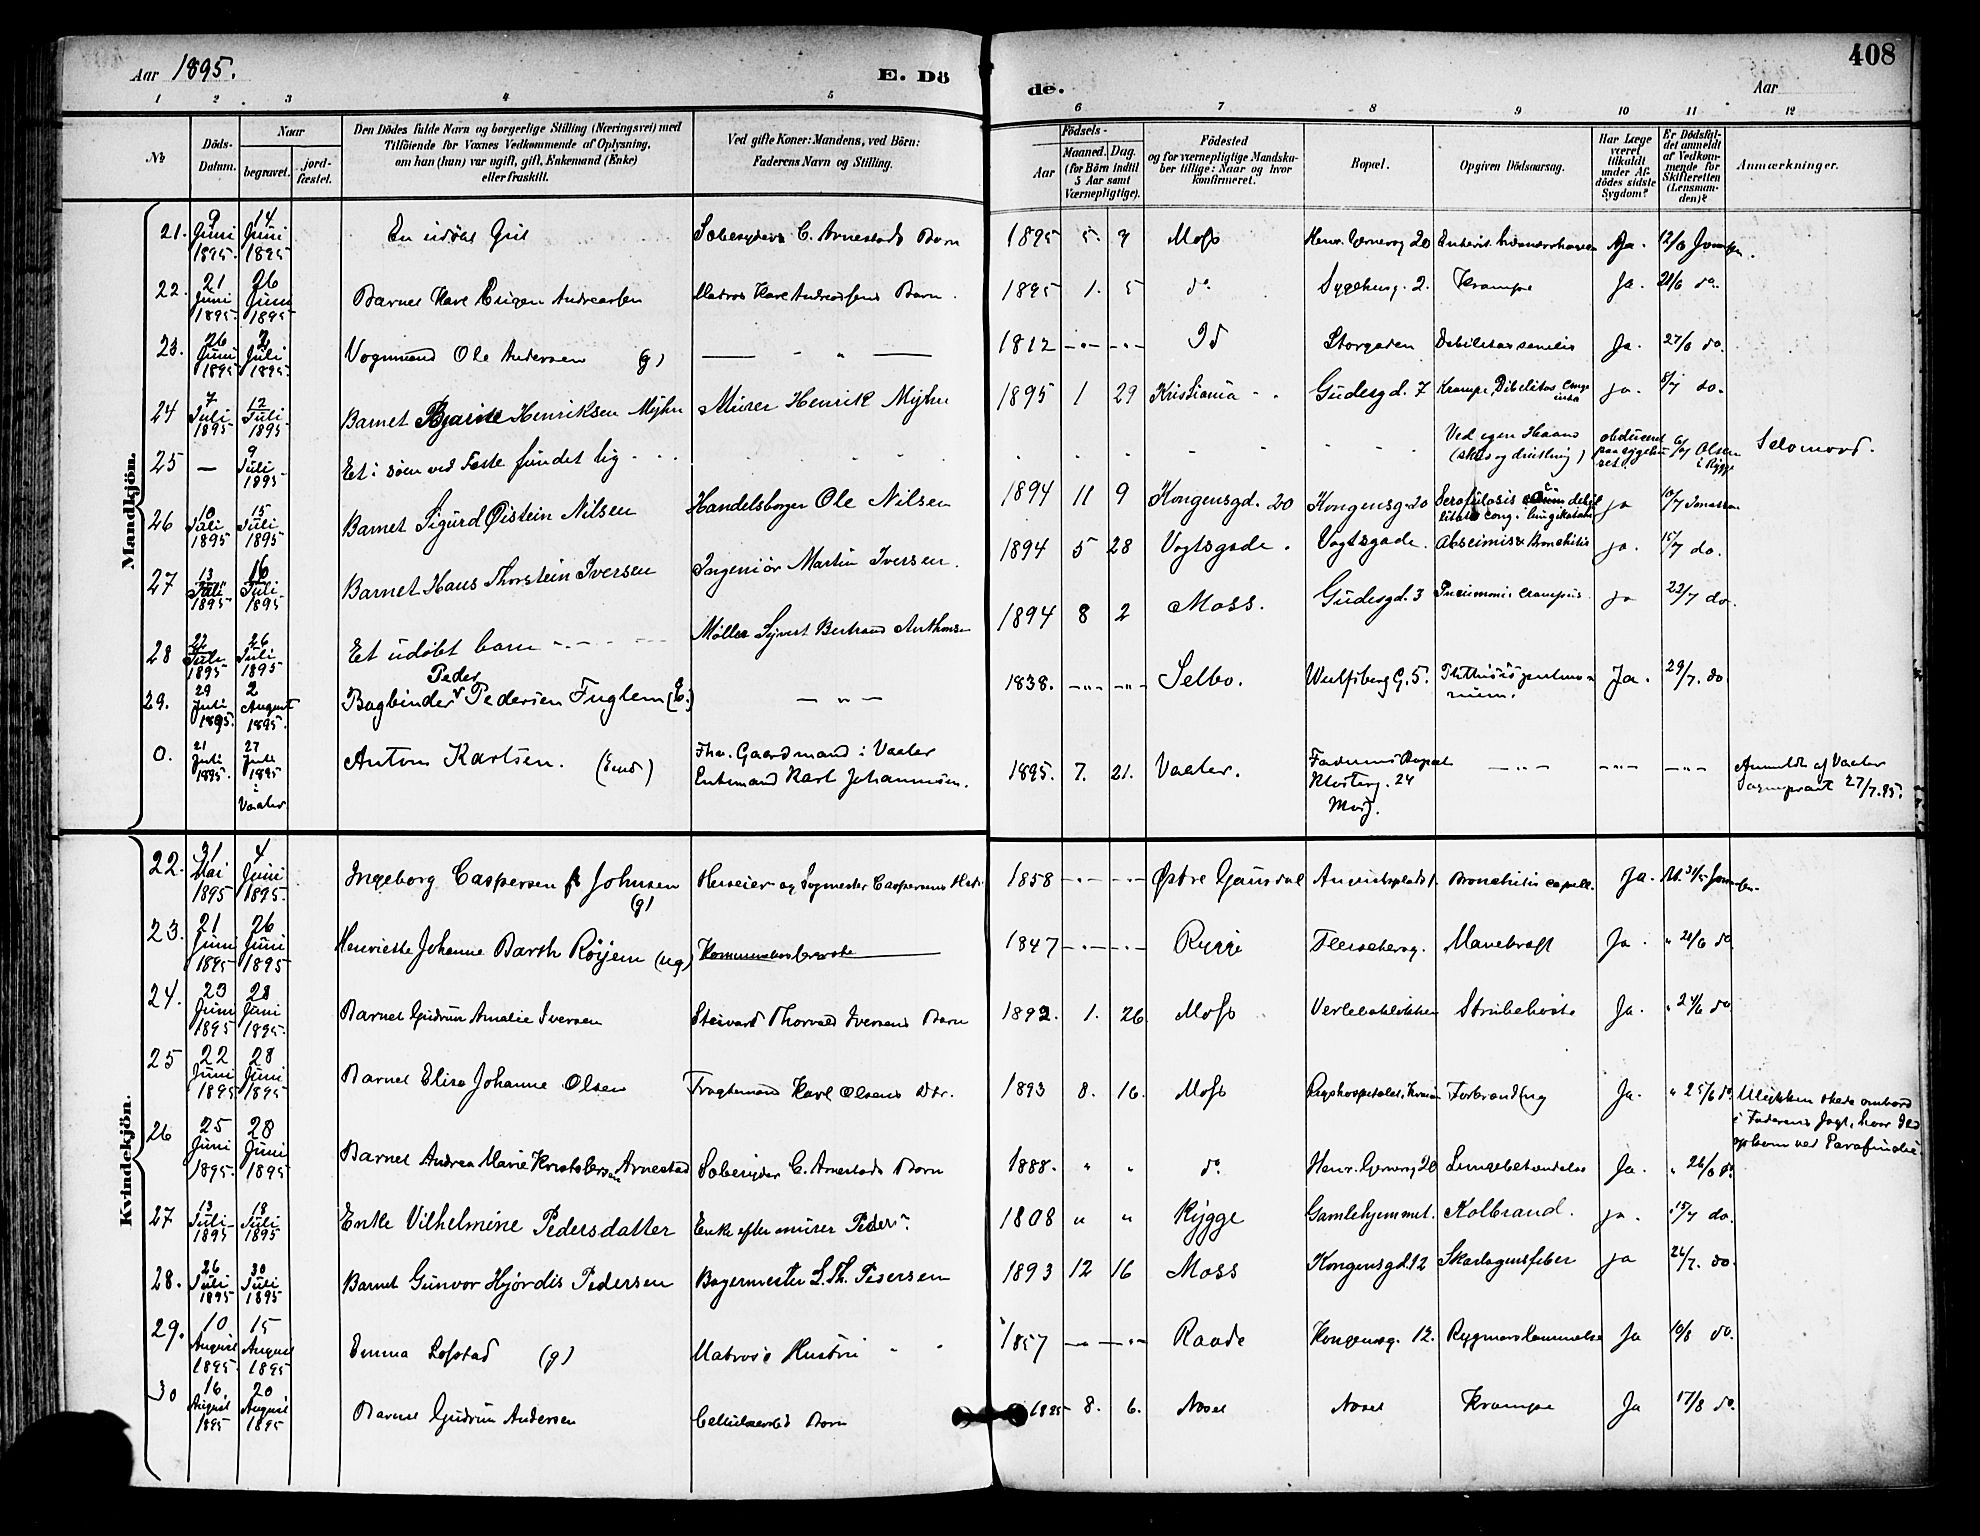 Aar 1895.
E. Dö
de.
408
Aar
1 2 3 4 5 6 7 8 9 10 11 12
No
Döds-Datum.
Naar
begravet.
jord-fæstet.
Den Dödes fulde Navn og borgerlige Stilling (Næringsvei) med
Tilföiende for Voxnes Vedkommende af Oplysning,
om han (hun) var ugift, gift, Enkemand (Enke)
eller fraskilt.
Ved gifte Koner: Mandens, ved Börn:
Faderens Navn og Stilling.
Födsels-
Aar
Maaned. Dag.
(for Börn indtil
5 Aar samt
Værnepligtige).
Födested
og for værnepligtige Mandska-
ber tillige: Naar og hvor
konfirmeret.
Bopæl.
Opgiven Dödsaarsag.
Har Læge
været
tilkaldt
under Af-
dödes sidste
Sygdom?
Er Dödsfal-
det anmeldt
af Vedkom-
mende for
Skifteretten
(Lensman-
den)?
Anmærkninger.
Mandkjön.
21. 9 Juni 1895. 14 Juni 1895 En udöbt C. Arnestads Barn 1895 5. 9 Moss Henr. Gernersg 20 Ja. 12/6
22. 21 Juni 1895 26 Juni 1895 Barnet Karl Eugen Andreasen Matros Karl Andreassens Barn. 1895 1. 5 do Sygehusg. 2. Krampe Ja. 21/6 do.
23. 26 Juni 1895 2 Juli 1895. Vognmand Ole Andersen (g) — „ — 1812 Id Storgaden Debilitas senilis Ja. 27/6 do.
24 7 Juli 1895 12 Juli 1895. Barnet Bjarne Henriksen Myhre Murer Henrik Myhre 1895 1 29 Kristiania Gudesgd. 7 Krampe, Debilitas ja. 8/7 do.
25 — 9 Juli 1895. Et i söen ved fundet lig Ved egen Haand (skud og drukning) Olsen i Rygge Selvmord.
26 10 Juli 1895 15 Juli 1895 Barnet Sigurd Öistein Nilsen Handelsborger Ole Nilsen 1894 11 9 Kongensgd. 20 Kongensg. 20 ja 10/7
27 13 Juli 1895 16 Juli 1895 Barnet Hans Thorstein Iversen Ingeniör Martin Iversen. 1894 5 28 Vogtsgade. Vogtsgade. Bronchitis ja. 15/7 do.
28 22 Juli 1895 26 Juli 1895 Et udöbt barn Möller Syvert Bertrand Anthonsen 1894 8 2 Moss. Gudesgd. 3 Pneumoni ja 23/7 do.
29. 29 Juli 1895. 2 August 1895. Bogbinder Peder Pedersen Fuglem (E.) — „ — 1838. Selbo. Wulfsberg G. 5. Phthisis pulmo-num. Ja. 29/7. do
0. 21 Juli 1895. 27 Juli 1895 i Vaaler Anton Karlsen. Fhv. Gaardmand i Vaaler Enkemand Karl Johannsen. 1895. 7. 21. Vaaler. Faderens Bopæl Klosterg. 24 Moss. — „ — Anmeldt af Vaaler Sogneprest 27/7.95.
Kvindekjön.
22. 31 Mai 1895 4 Juni 1895. Ingeborg Caspersen f. Johnsen (g) Caspersens 1858 Östre Gausdal Bronchitis capill. Ja.
23. 21 Juni 1895 26 Juni 1895 Henriette Johanne Barth Röyem (ug) 1847 Rygge Marebraft Ja. 21/6 do
24. 23 Juni 1895 28 Juni 1895. Barnet Gudrun Amalie Iversen Stewart Thorvald Iversens Barn 1892. 1. 26 Moss Strubehoste Ja. 24/6 do
25 22 Juni 1895 28 Juni 1895 Barnet Elise Johanne Olsen Fragtemand Karl Olsens Dtr. 1893 8. 16. Moss Forbrænding Ja. 25/6 do Ulykken skete ombord i Faderens Jagt,
26 25 Juni 1895. 28 Juni 1895 Barnet Andrea Marie Arnestad C. Arnestads Barn 1888. „ „ do Henr. Gernersg 20 Lungebetændelse Ja. 26/6 do
27 13 Juli 1895 18 Juli 1895 Enke Vilhelmine Pedersdatter Enke efter murer Peder 1808 „ „ Rygge Gamlehjemmet. Kolbrand. ja. 15/7 do.
28. 26 Juli 1895 30 Juli 1895 Barnet Gunvor Hjördis Pedersen Bagermester Pedersen 1893 12 16 Moss Kongensgd. 12 Skarlagensfeber ja 26/7. do.
29. 10 August 1895. 15 August 1895 Emma Lofstad (g) Matros's Hustru 1857 Raade Kongensg. 12. Ja 10/8 do.
30 16. August 1895 20 August 1895 Barnet Gudrun Andersen Barn 1895 8. 6. Krampe Ja 17/8 do.